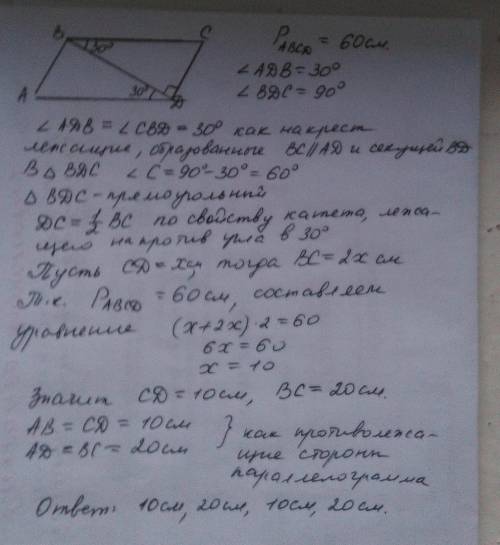 B C
30°
A 30° D
P ABCD = 60см.
∠ADB = 30°
∠BDC = 90°
∠ADB = ∠CBD = 30° как накрест
лежащие, образованные BC∥AD и секущей BD
В △BDC ∠C = 90°-30° = 60°
△BDC - прямоугольный
DC = 1/2 BC по свойству катета, лежа-
щего напротив угла в 30°
Пусть CD = x см, тогда BC = 2x см
Т.к. P ABCD = 60см, составляем
уравнение (x+2x)·2=60
6x = 60
x = 10
Значит CD = 10см, BC = 20см.
AB = CD = 10см
AD = BC = 20см
} как противолежа-
щие стороны
параллелограмма
Ответ: 10см, 20см, 10см, 20см.